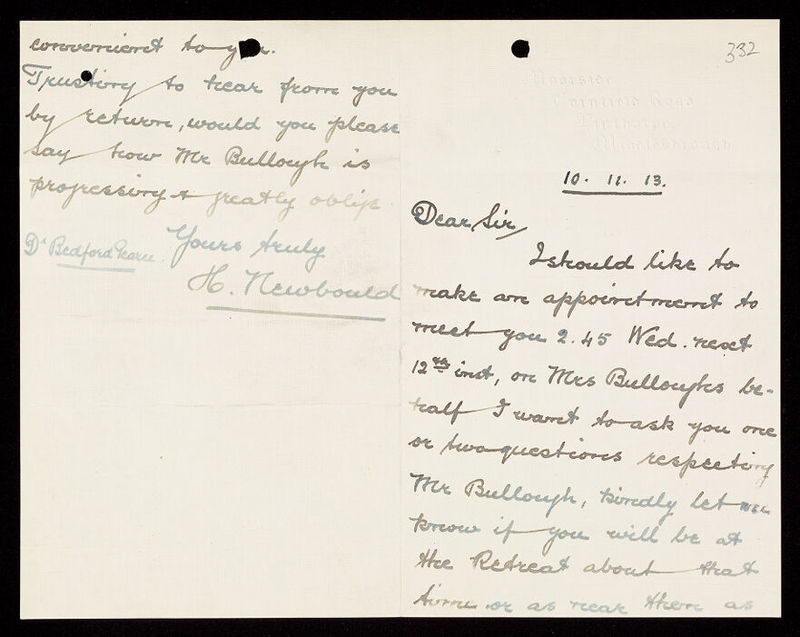 332
Moorside
Cornfield Road
Linthorpe,
Middlesbrough
10. 11. 13.
Dear Sir,
I should like to
make an appointment to
meet you 2.45 Wed. next
12th inst, on Mrs Bulloughs be-
half I want to ask you one
or two questions respecting
Mr Bullough, kindly let me
know if you will be at
the Retreat about that
time or as near then as
convenient to you.
Trusting to hear from you
by return, would you please
say how Mr Bullough is
progressing & greatly oblige
Yours truly
Dr Bedford
H. Newbould